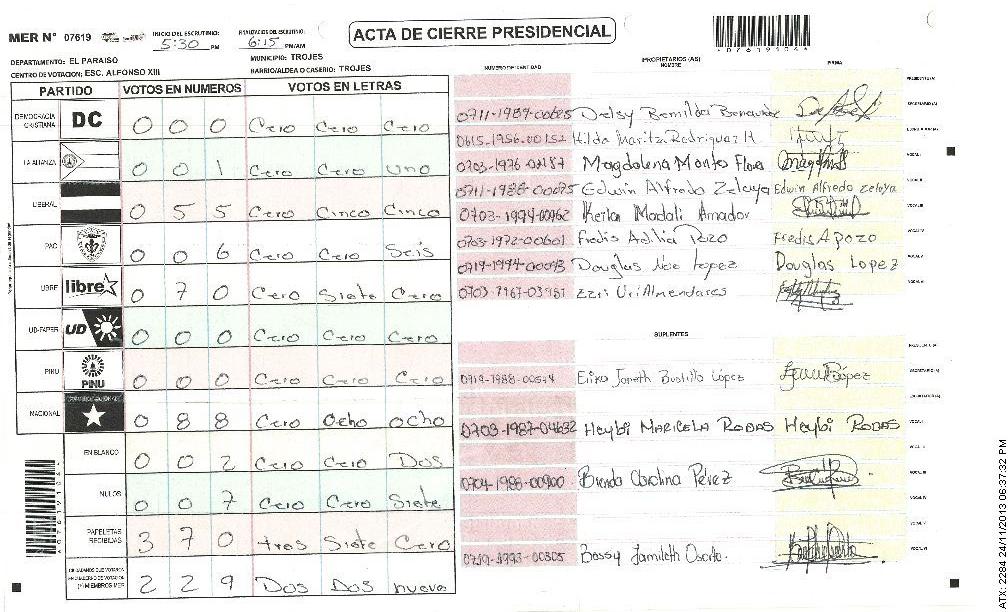 MER N° 07619
INICIO DEL ESCRUTINIO: 5:30 PM
FINALIZACION DEL ESCRUTINIO: 6:15 PM/AM
ACTA DE CIERRE PRESIDENCIAL
DEPARTAMENTO: EL PARAISO
MUNICIPIO: TROJES
CENTRO DE VOTACION: ESC. ALFONSO XIII
BARRIO/ALDEA O CASERIO: TROJES
PARTIDO VOTOS EN NUMEROS VOTOS EN LETRAS
DEMOCRACIA CRISTIANA DC 0 0 0 Cero Cero Cero
LA ALIANZA 0 0 1 Cero Cero Uno
LIBERAL 0 5 5 Cero Cinco Cinco
PAC 0 0 6 Cero Cero Seis
LIBRE libre 0 7 0 Cero Siete Cero
UD-FAPER UD 0 0 0 Cero Cero Cero
PINU PINU 0 0 0 Cero Cero Cero
NACIONAL 0 8 8 Cero Ocho ocho
EN BLANCO 0 0 2 Cero Cero Dos
NULOS 0 0 7 Cero Cero Siete
PAPELETAS RECIBIDAS 3 7 0 tres Siete Cero
2 2 9 Dos Dos nueve
NUMERO DE IDENTIDAD
PROPIETARIOS (AS)
NOMBRE
FIRMA
Hilda Maritza Rodriguez H
Magdalena Monto
0711-1988-00075 Edwin Alfredo Zelaya Edwin Alfredo Zelaya
0703-1994-00962 Keila Madali Amador
0703-1972-00601 Fredis Pozo Fredis A Pozo
Douglas Lopez Douglas Lopez
Uri Almendares
SUPLENTES
0719-1988-00574 Erika Janeth Bustillo López
0703-1987-04632 Heybi MARICELA RODAS Heybi RODAS
0704-1988-00900 Brenda Carolina Pérez
0719-1993-00305 Bessy Jamileth Osorto
ATX: 2284 24/11/2013 06:37:32 PM